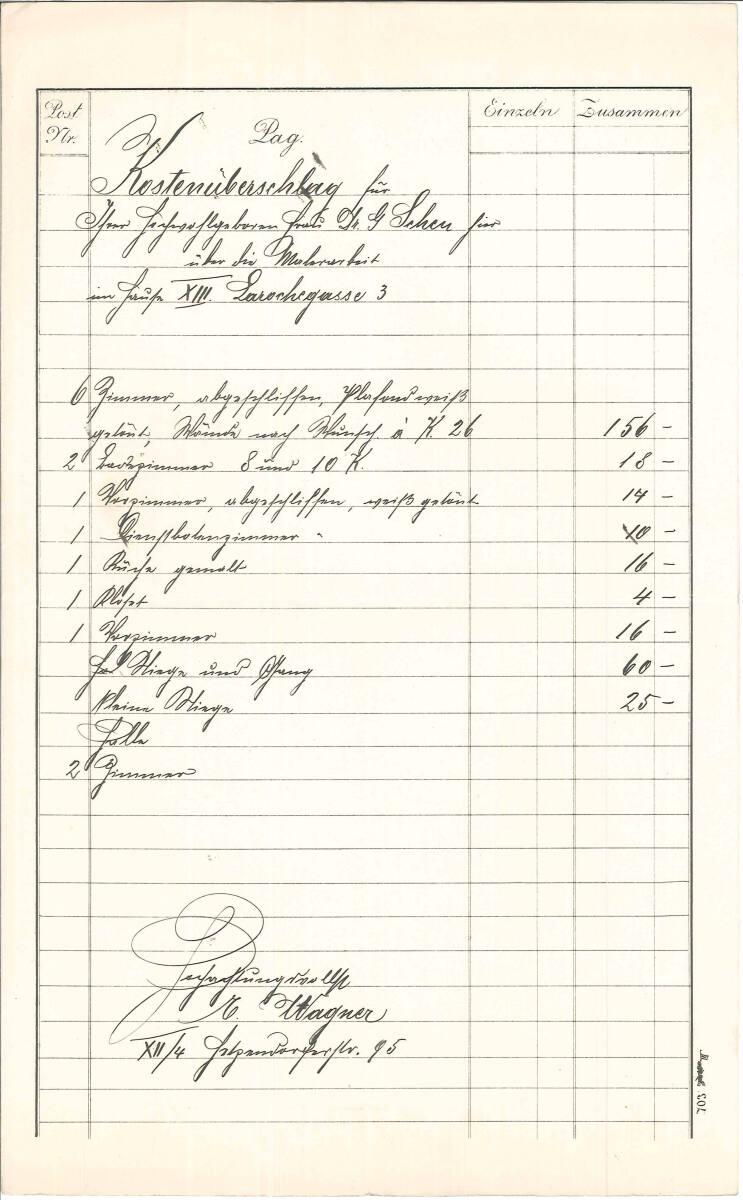 Post Nr.
Pag.
Einzeln
Zusammen
Kostenüberschlag für
Ihrer Hochwohlgeboren Frau Dr. G Scheu hier
über die Malerarbeit
im Hause XIII. Larochegasse 3
6 Zimmer, abgeschliffen, Plafond weiß
getönt, Wände nach Wunsch à K. 26 156 –
2 Badezimmer 8 und 10 K. 18 –
1 Vorzimmer, abgeschliffen, weiß getönt 14 –
1 Dienstbotenzimmer " 10 –
1 Küche gemalt 16 –
1 Kloset 4 –
1 Vorzimmer 16 –
Stiege und Gang 60 –
kleine Stiege 25 –
Halle
2 Zimmer
Hochachtungsvollst
Wagner
XII/4 Hetzendorferstr. 95
703